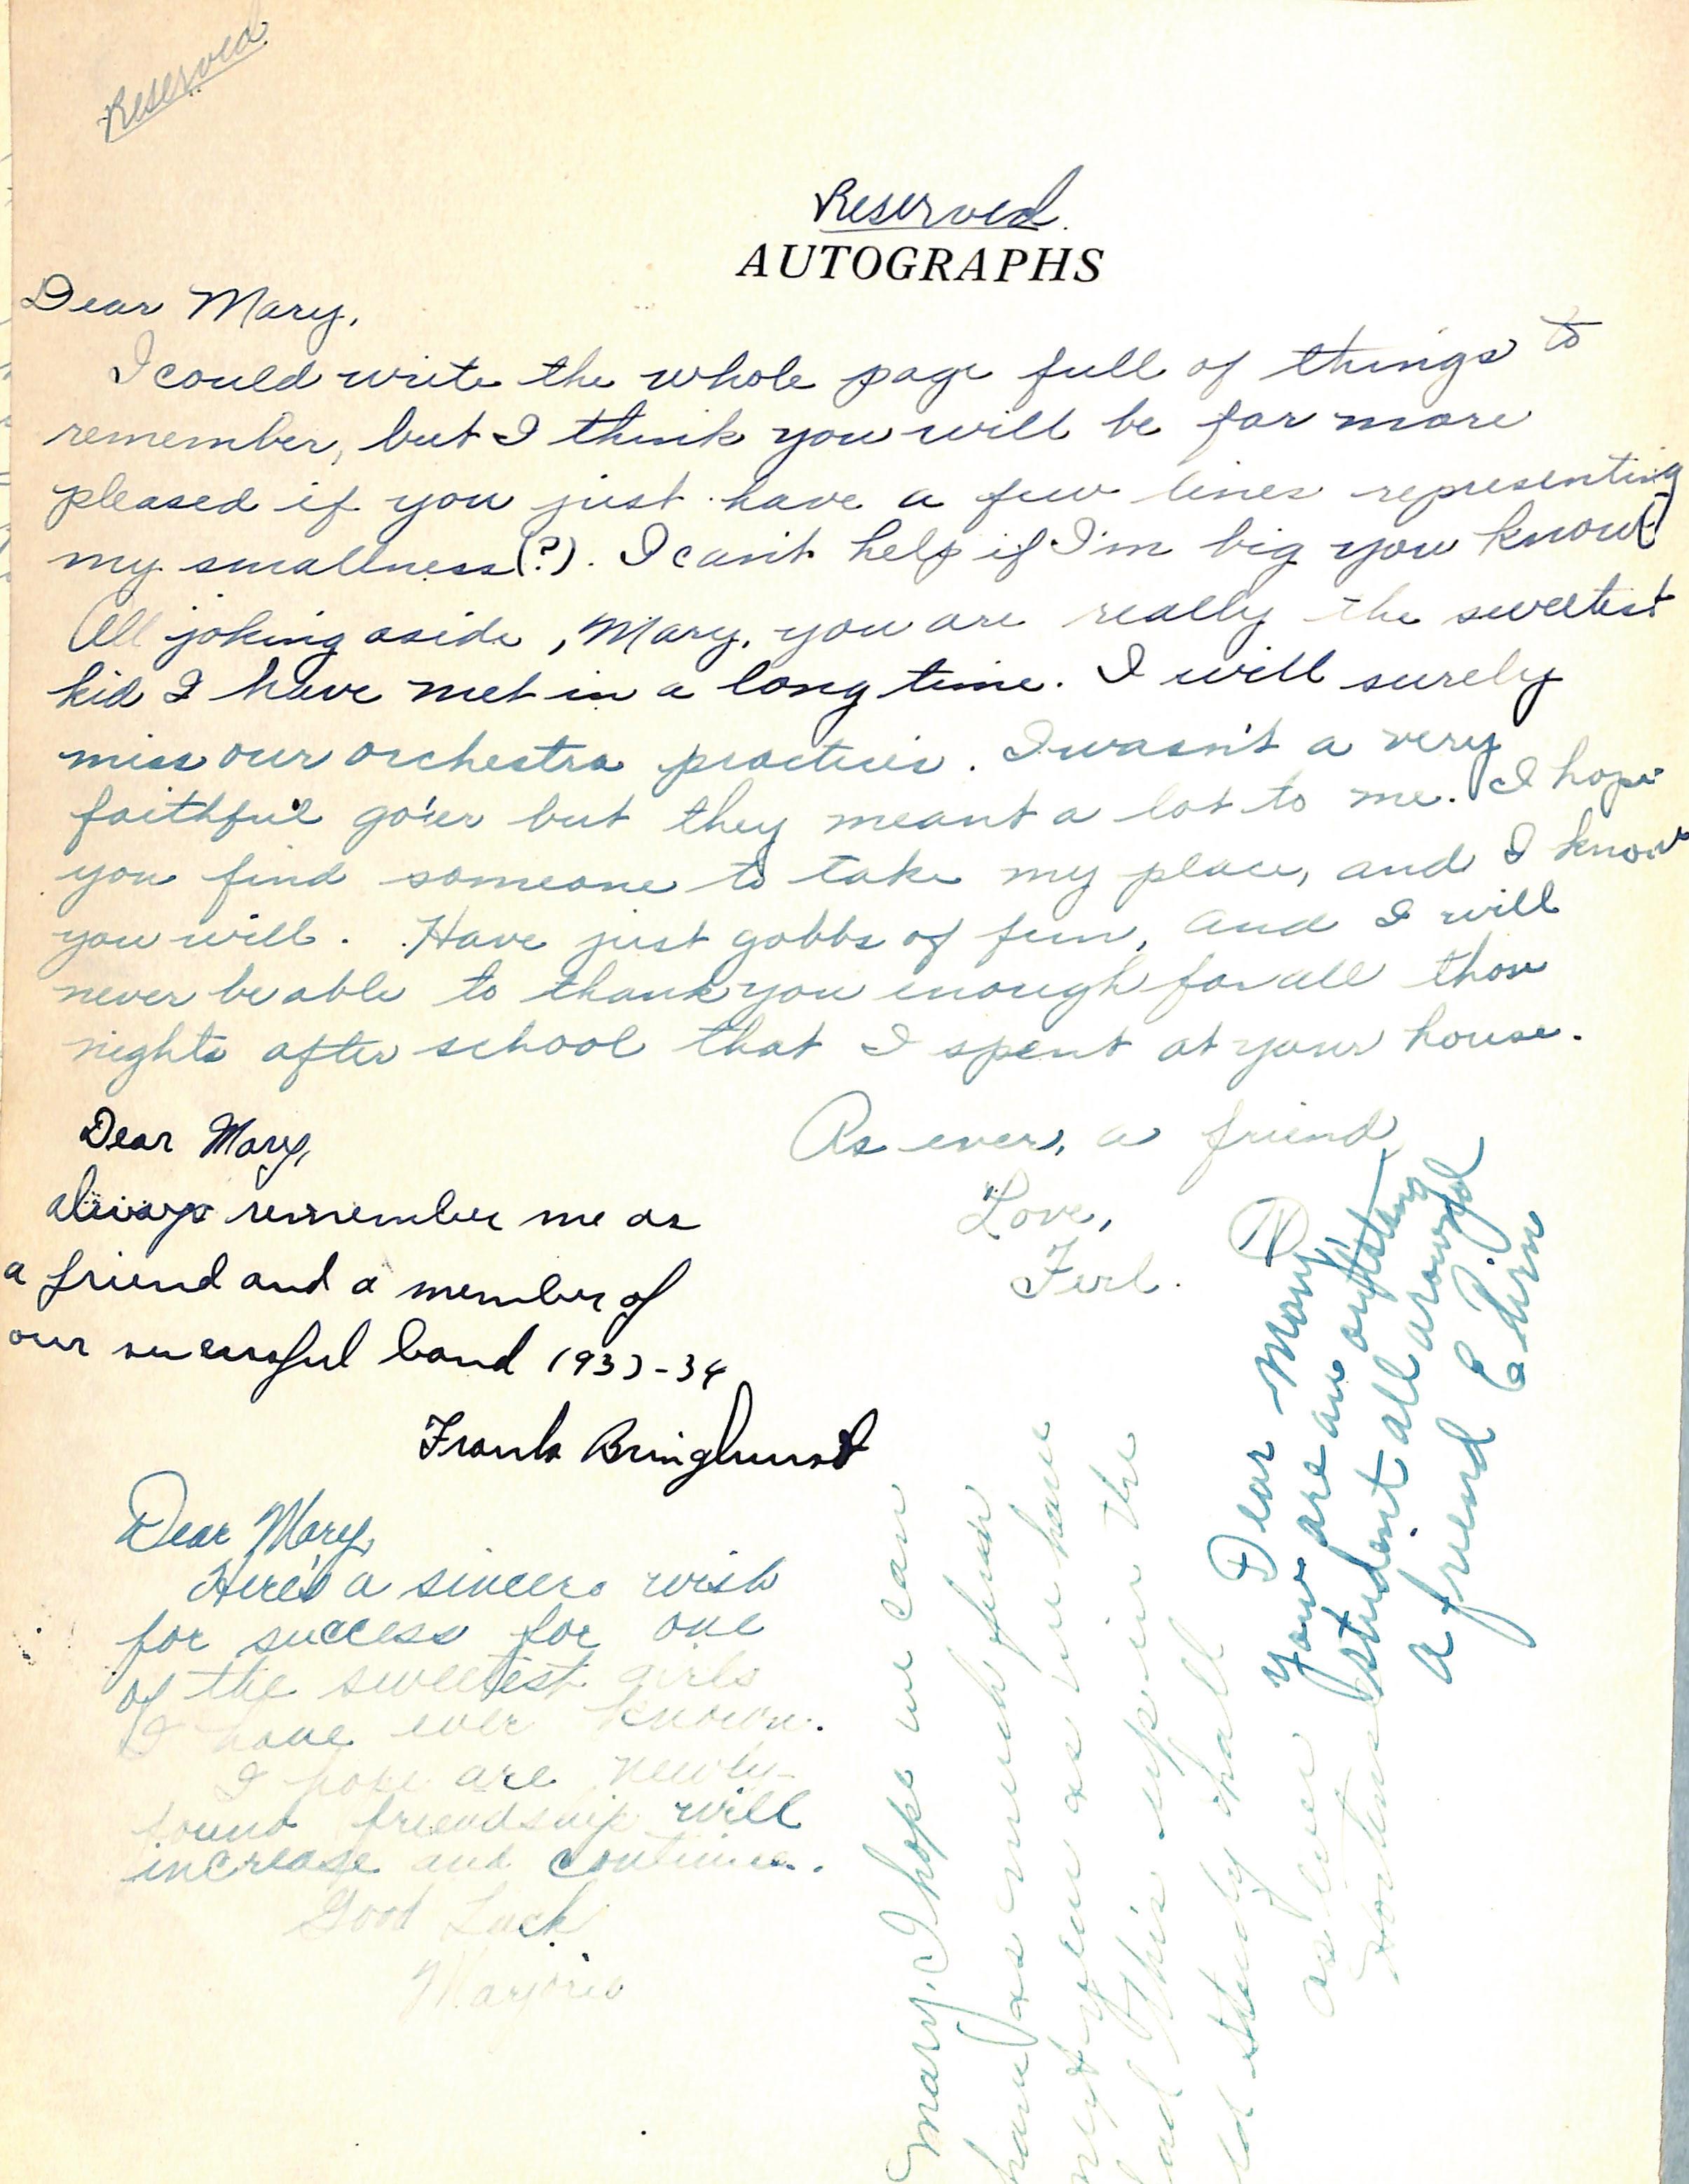 Reserved
Reserved.
AUTOGRAPHS
Dear Mary,
I could write the whole page full of things to
remember, but I think you will be far more
pleased if you just have a few lines representing
my smallness(?). I can't help if I'm big you know!
All joking aside, Mary, you are really the sweetest
kid I have met in a long time. I will surely
miss our orchestra practices. I wasn't a very
faithful go'er but they meant a lot to me. I hope
you find someone to take my place, and I know
you will. Have just gobbs of fun, and I will
never be able to thank you enough for all those
nights after school that I spent at your house.
As ever, a friend,
Love,
Ferl.
Dear Mary,
always remember me as
a friend and a member of
our successful band 1933-34
Frank Bringhurst
Dear Mary,
Here's a sincere wish
for success for one
of the sweetest girls
I have ever known.
I hope are newly-
found friendship will
increase and continue.
Good Luck
Marjorie
Mary, I hope we can
have as much fun
next year as we have
had this up in the
old study hall
as ever
Dear Mary
Your are an
student all around
a friend